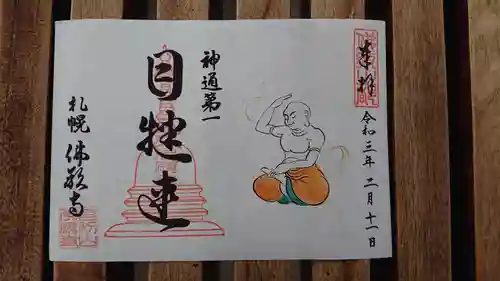 奉拝
令和三年二月十一日
神通第一
目犍連
札幌 佛願寺